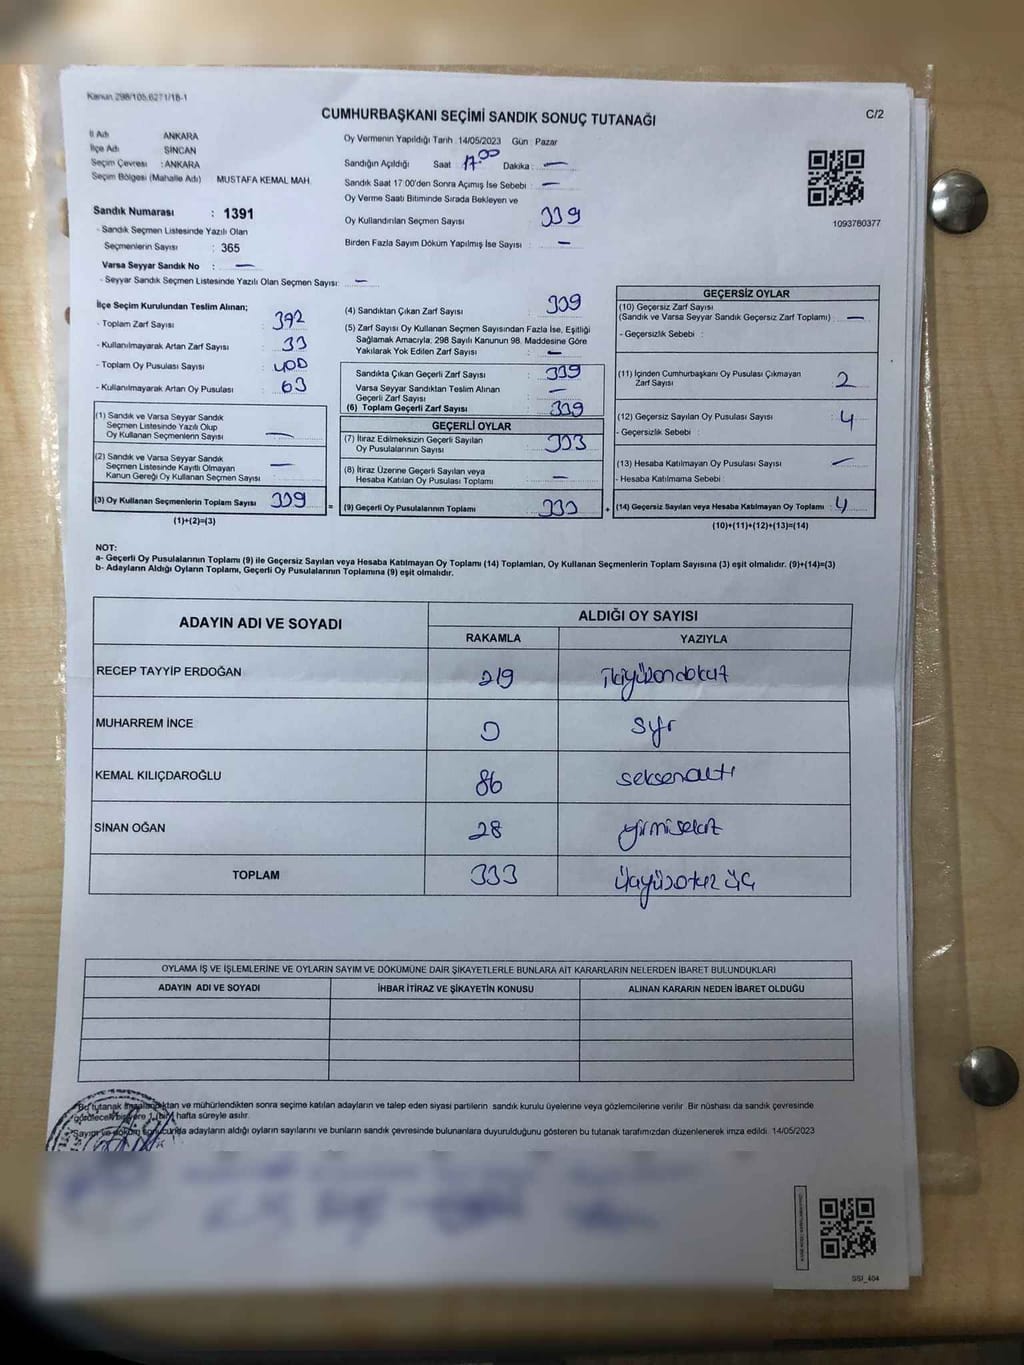 Kanun 298/105,6271/18-1
CUMHURBAŞKANI SEÇİMİ SANDIK SONUÇ TUTANAĞI
C/2
İl Adı ANKARA
İlçe Adı SİNCAN
Seçim Çevresi : ANKARA
Seçim Bölgesi (Mahalle Adı) MUSTAFA KEMAL MAH.
Sandık Numarası : 1391
- Sandık Seçmen Listesinde Yazılı Olan
Seçmenlerin Sayısı : 365
Varsa Seyyar Sandık No : —
- Seyyar Sandık Seçmen Listesinde Yazılı Olan Seçmen Sayısı: —
Oy Vermenin Yapıldığı Tarih 14/05/2023 Gün Pazar
Sandığın Açıldığı Saat 17.00 Dakika : —
Sandık Saat 17:00'den Sonra Açımış İse Sebebi : —
Oy Verme Saati Bitiminde Sırada Bekleyen ve
Oy Kullandırılan Seçmen Sayısı 339
Birden Fazla Sayım Döküm Yapılmış İse Sayısı : —
1093780377
İlçe Seçim Kurulundan Teslim Alınan;
- Toplam Zarf Sayısı : 392
- Kullanılmayarak Artan Zarf Sayısı : 33
- Toplam Oy Pusulası Sayısı : 400
- Kullanılmayarak Artan Oy Pusulası : 63
(1) Sandık ve Varsa Seyyar Sandık
Seçmen Listesinde Yazılı Olup
Oy Kullanan Seçmenlerin Sayısı : —
(2) Sandık ve Varsa Seyyar Sandık
Seçmen Listesinde Kayıtlı Olmayan
Kanun Gereği Oy Kullanan Seçmen Sayısı : —
(3) Oy Kullanan Seçmenlerin Toplam Sayısı 339
(1)+(2)=(3)
(4) Sandıktan Çıkan Zarf Sayısı : 339
(5) Zarf Sayısı Oy Kullanan Seçmen Sayısından Fazla İse, Eşitliği
Sağlamak Amacıyla; 298 Sayılı Kanunun 98. Maddesine Göre
Yakılarak Yok Edilen Zarf Sayısı : —
Sandıkta Çıkan Geçerli Zarf Sayısı : 339
Varsa Seyyar Sandıktan Teslim Alınan
Geçerli Zarf Sayısı : —
(6) Toplam Geçerli Zarf Sayısı : 339
GEÇERLİ OYLAR
(7) İtiraz Edilmeksizin Geçerli Sayılan
Oy Pusulalarının Sayısı : 333
(8) İtiraz Üzerine Geçerli Sayılan veya
Hesaba Katılan Oy Pusulası Toplamı : —
= (9) Geçerli Oy Pusulalarının Toplamı : 333
GEÇERSİZ OYLAR
(10) Geçersiz Zarf Sayısı
(Sandık ve Varsa Seyyar Sandık Geçersiz Zarf Toplamı) : —
- Geçersizlik Sebebi :
(11) İçinden Cumhurbaşkanı Oy Pusulası Çıkmayan
Zarf Sayısı : 2
(12) Geçersiz Sayılan Oy Pusulası Sayısı : 4
- Geçersizlik Sebebi :
(13) Hesaba Katılmayan Oy Pusulası Sayısı : —
- Hesaba Katılmama Sebebi :
+ (14) Geçersiz Sayılan veya Hesaba Katılmayan Oy Toplamı : 4
(10)+(11)+(12)+(13)=(14)
NOT:
a- Geçerli Oy Pusulalarının Toplamı (9) ile Geçersiz Sayılan veya Hesaba Katılmayan Oy Toplamı (14) Toplamları, Oy Kullanan Seçmenlerin Toplam Sayısına (3) eşit olmalıdır. (9)+(14)=(3)
b- Adayların Aldığı Oyların Toplamı, Geçerli Oy Pusulalarının Toplamına (9) eşit olmalıdır.
ADAYIN ADI VE SOYADI ALDIĞI OY SAYISI
RAKAMLA YAZIYLA
RECEP TAYYİP ERDOĞAN 219 ikiyüzondokuz
MUHARREM İNCE 0 sıfır
KEMAL KILIÇDAROĞLU 86 seksenaltı
SİNAN OĞAN 28 yirmisekiz
TOPLAM 333 üçyüzotuz üç
OYLAMA İŞ VE İŞLEMLERİNE VE OYLARIN SAYIM VE DÖKÜMÜNE DAİR ŞİKAYETLERLE BUNLARA AİT KARARLARIN NELERDEN İBARET BULUNDUKLARI
ADAYIN ADI VE SOYADI İHBAR İTİRAZ VE ŞİKAYETİN KONUSU ALINAN KARARIN NEDEN İBARET OLDUĞU
Bu tutanak ve mühürlendikten sonra seçime katılan adayların ve talep eden siyasi partilerin sandık kurulu üyelerine veya gözlemcilerine verilir. Bir nüshası da sandık çevresinde
hafta süreyle asılır.
adayların aldığı oyların sayılarını ve bunların sandık çevresinde bulunanlara duyurulduğunu gösteren bu tutanak tarafımızdan düzenlenerek imza edildi. 14/05/2023
SSI_404